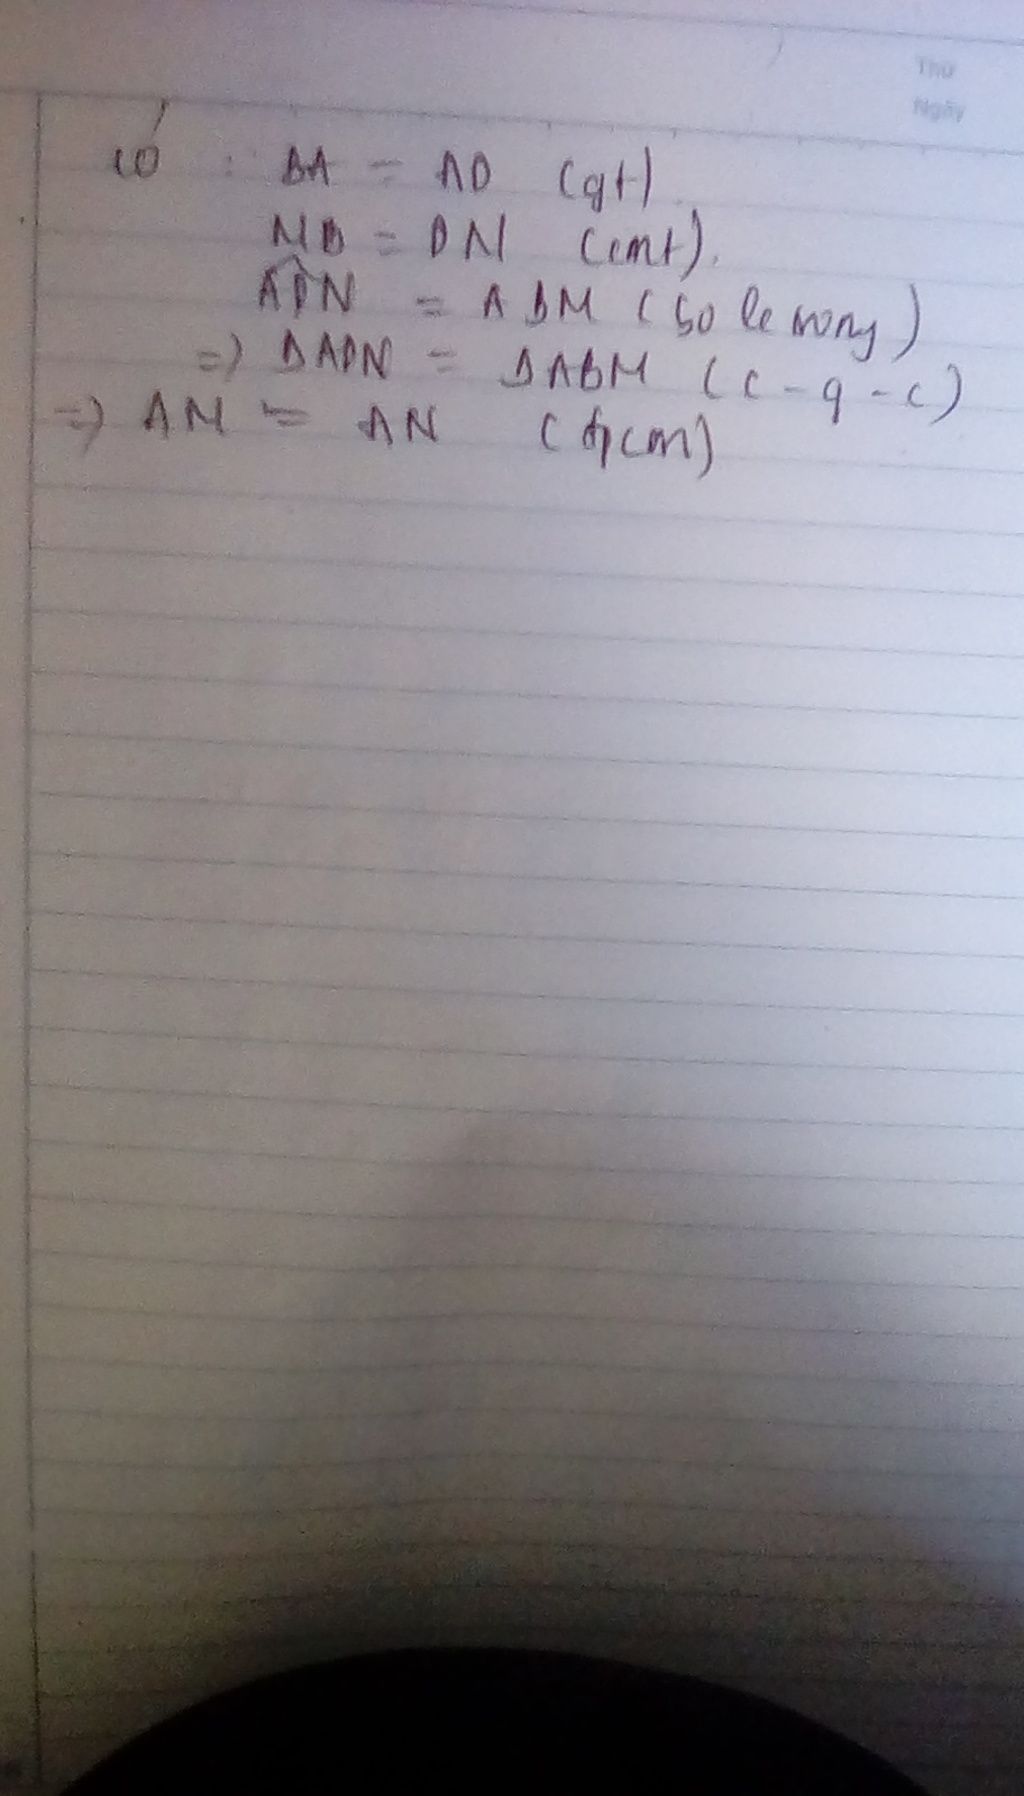 Thứ
Ngày
có : BA = AD (gt)
MB = DN (cmt).
ADN = ABM (so le trong)
=> ΔADN = ΔABM (c-g-c)
=> AM = AN (đpcm)